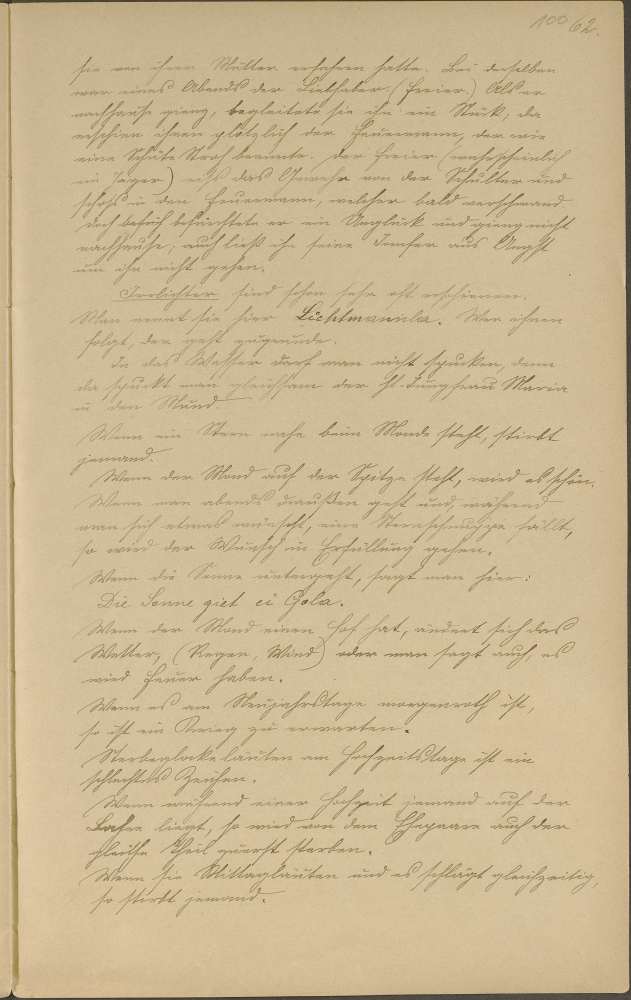 100 62.
sie von ihrer Mutter erfahren hatte. Bei derselben
war eines Abends der Liebhaber (Freier.) Als er
nachhause gieng, begleitete sie ihn ein Stück; da
erschien ihnen plötzlich der Feuermann, der wie
eine Schütte Stroh brannte. Der Freier (wahrscheinlich
ein Jäger) riß das Gewehr von der Schulter und
schoß in den Feuermann, welcher bald verschwand
doch befürchtete er ein Unglück und gieng nicht
nachhause; auch ließ ihn seine Jomfer aus Angst
um ihn nicht gehen.
Irrlichter sind schon sehr oft erschienen.
Man nennt sie hier Lichtmannla. Wer ihnen
folgt, der geht zugrunde.
In das Wasser darf man nicht spucken, denn
da spuckt man gleichsam der hl. Jungfrau Maria
in den Mund.
Wenn ein Stern nahe beim Monde steht, stirbt
jemand.
Wenn der Mond auf der Spitze steht, wird es schön.
Wenn man abends draußen geht und, während
man sich etwas wünscht, eine Sternschnuppe fällt,
so wird der Wunsch in Erfüllung gehen.
Wenn die Sonne untergeht, sagt man hier:
Die Sonne giet ei Gola.
Wenn der Mond einen Hof hat, ändert sich das
Wetter, (Regen, Wind) oder man sagt auch, es
wird Feuer haben.
Wenn es am Neujahrstage morgenroth ist,
so ist ein Krieg zu erwarten.
Sterbeglocke läuten am Hochzeitstage ist ein
schlechtes Zeichen.
Wenn während einer Hochzeit jemand auf der
liegt, so wird von dem Ehepaare auch der
gleiche Theil zuerst sterben.
Wenn sie Mittagläuten und es schlägt gleichzeitig,
so stirbt jemand.